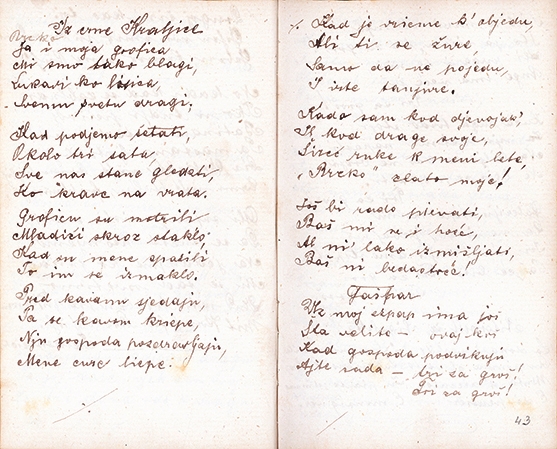 Iz crne Kraljice
Brzko
Ja i moja grofica
Mi smo tako blagi,
Lukavi ko lisica,
Svemu svetu dragi.
Kad podjemo šetati,
Okolo tri sata,
Sve nas stane gledati,
Ko krave na vrata.
Groficu su motrili
Mladići skroz staklo,
Kad su mene spazili
To im se izmaklo.
Pred kavanu sjedaju,
Pa se kavom kriepe,
Nju gospoda pozdravljaju,
Mene cure liepe.
Kad je vrieme k' objedu,
Ali ti se žure,
Samo da ne pojedu
I iste tanjire.
Kada sam kod djevojak'
Il kod drage svoje,
Šireć ruke k meni lete,
"Brzko" zlato moje!
Još bi rado pievati,
Baš mi se i hoće,
Al ni lako izmišljati,
Baš ni bedastoće!
Gašpar
Uz moj špag ima još
Šta velite – ovaj koš
Kad gospoda podvikuju
Ajte sada – tri za groš!
Tri za groš!
43